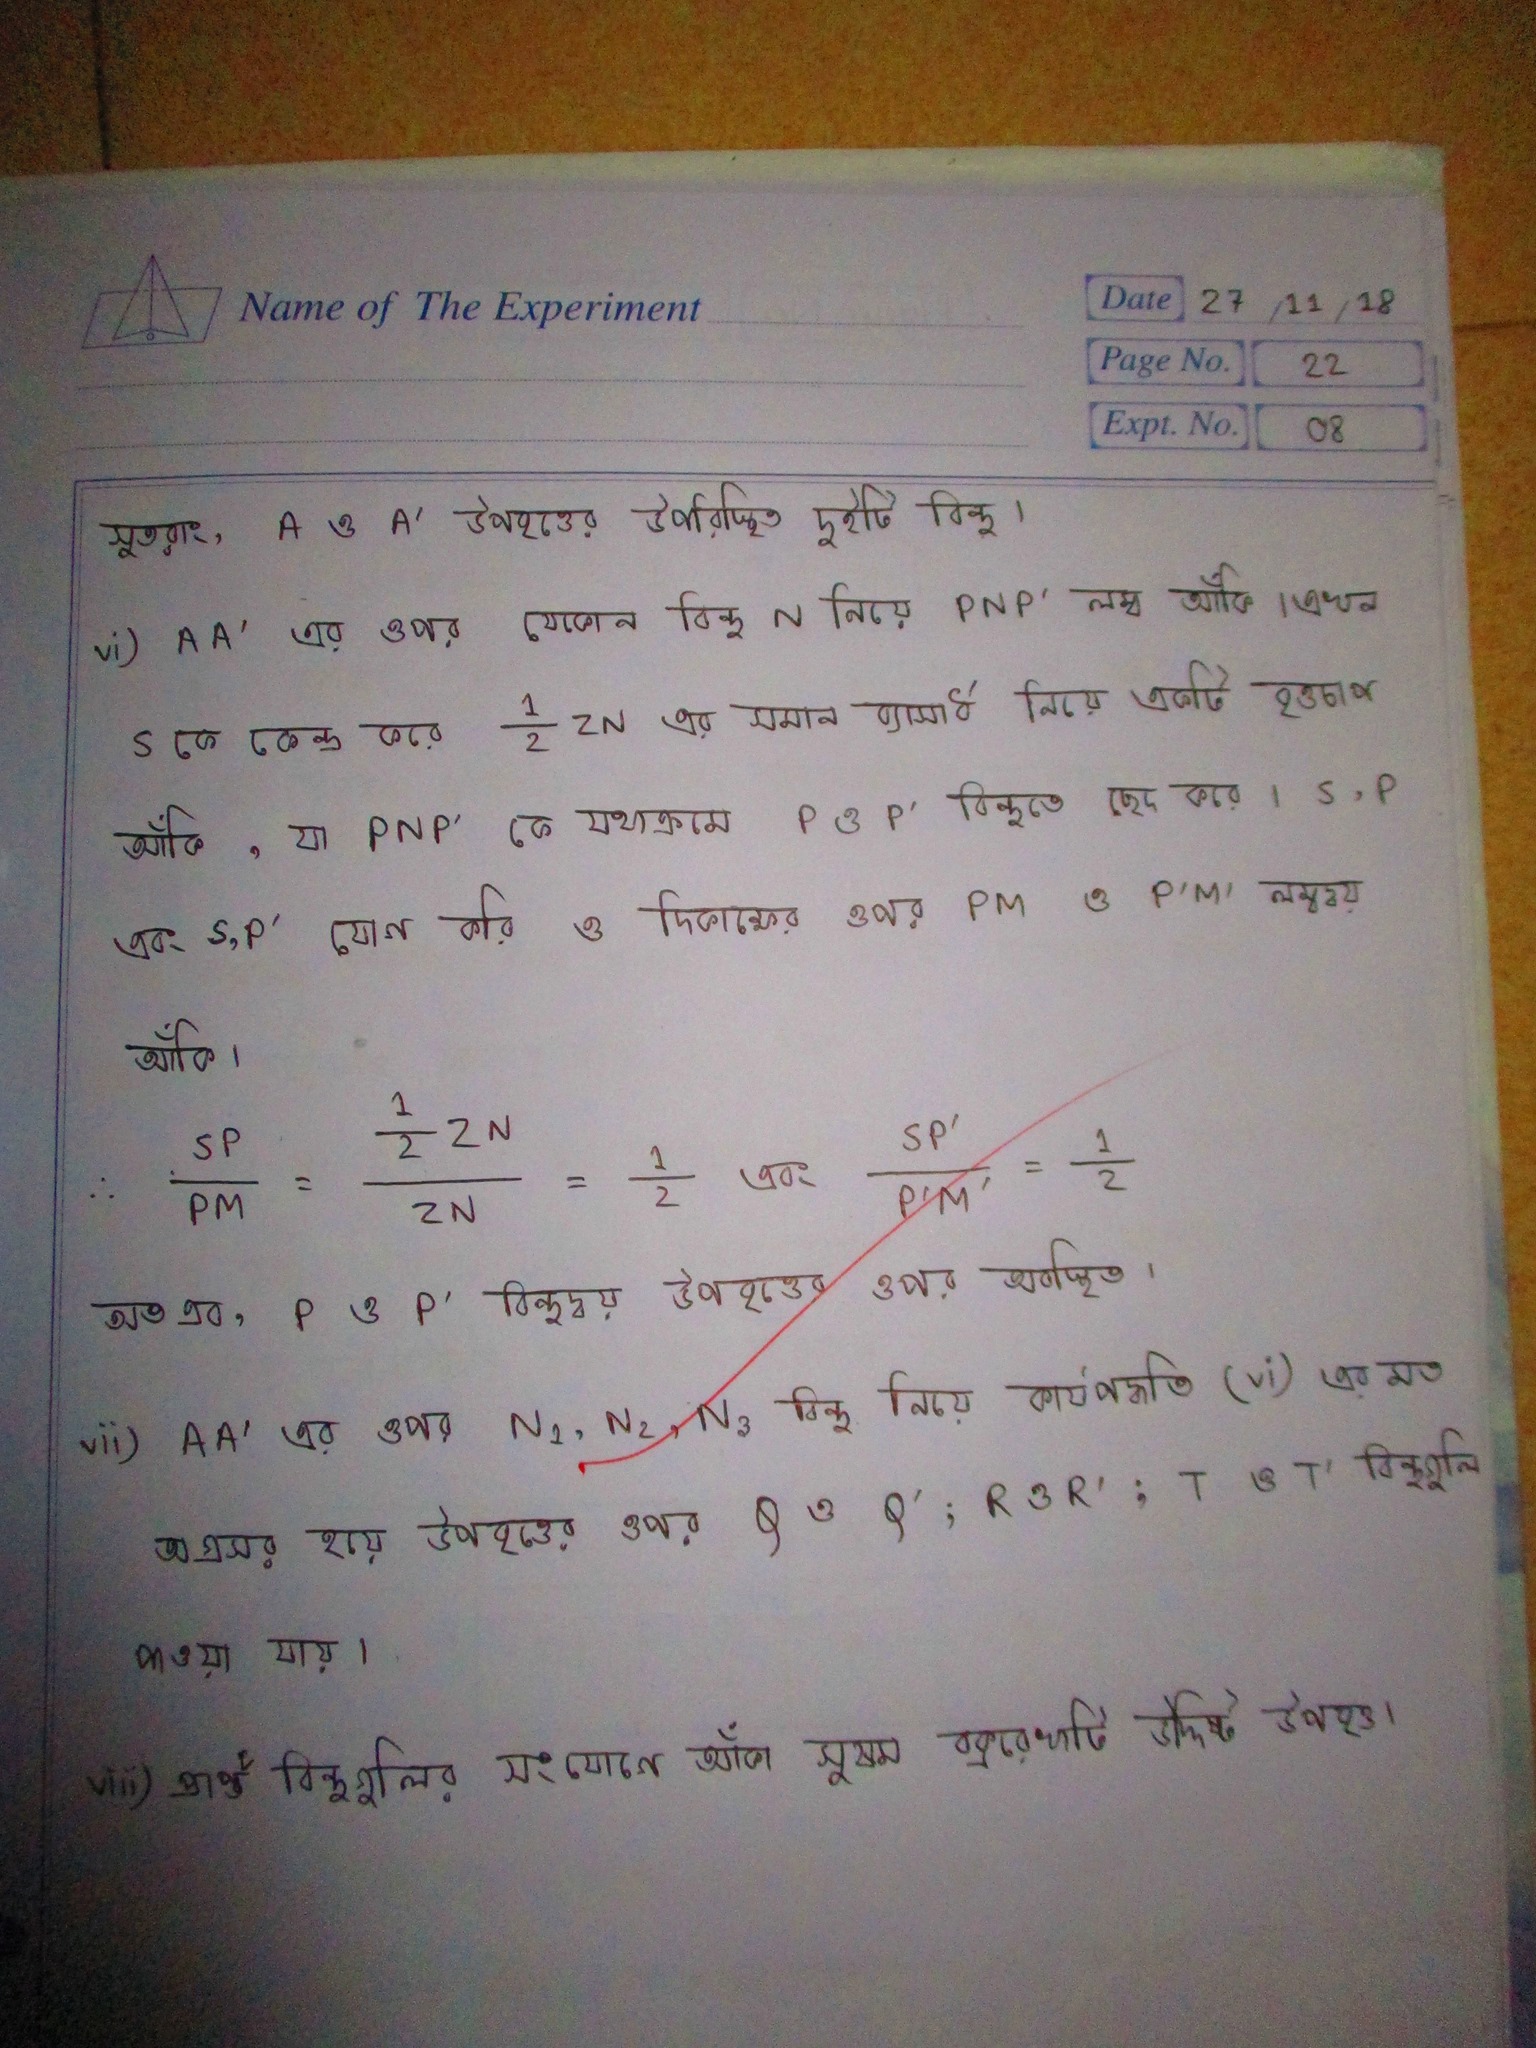 Name of The Experiment
Date 27/11/18
Page No. 22
Expt. No. 08
সুতরাং, A ও A' উপবৃত্তের উপরিস্থিত দুইটি বিন্দু।
vi) AA' এর ওপর যেকোন বিন্দু N নিয়ে PNP' লম্ব আঁকি। এখন
S কে কেন্দ্র করে 1/2 ZN এর সমান ব্যাসার্ধ নিয়ে একটি বৃত্তচাপ
আঁকি, যা PNP' কে যথাক্রমে P ও P' বিন্দুতে ছেদ করে। S,P
এবং S,P' যোগ করি ও দিকাক্ষের ওপর PM ও P'M' লম্বদ্বয়
আঁকি।
∴ SP/PM = (1/2 ZN)/ZN = 1/2 এবং SP'/P'M' = 1/2
অতএব, P ও P' বিন্দুদ্বয় উপবৃত্তের ওপর অবস্থিত।
vii) AA' এর ওপর N1, N2, N3 বিন্দু নিয়ে কার্যপদ্ধতি (vi) এর মত
অগ্রসর হয়ে উপবৃত্তের ওপর Q ও Q'; R ও R'; T ও T' বিন্দুগুলি
পাওয়া যায়।
viii) প্রাপ্ত বিন্দুগুলির সংযোগে আঁকা সুষম বক্ররেখাটি উদ্দিষ্ট উপবৃত্ত।